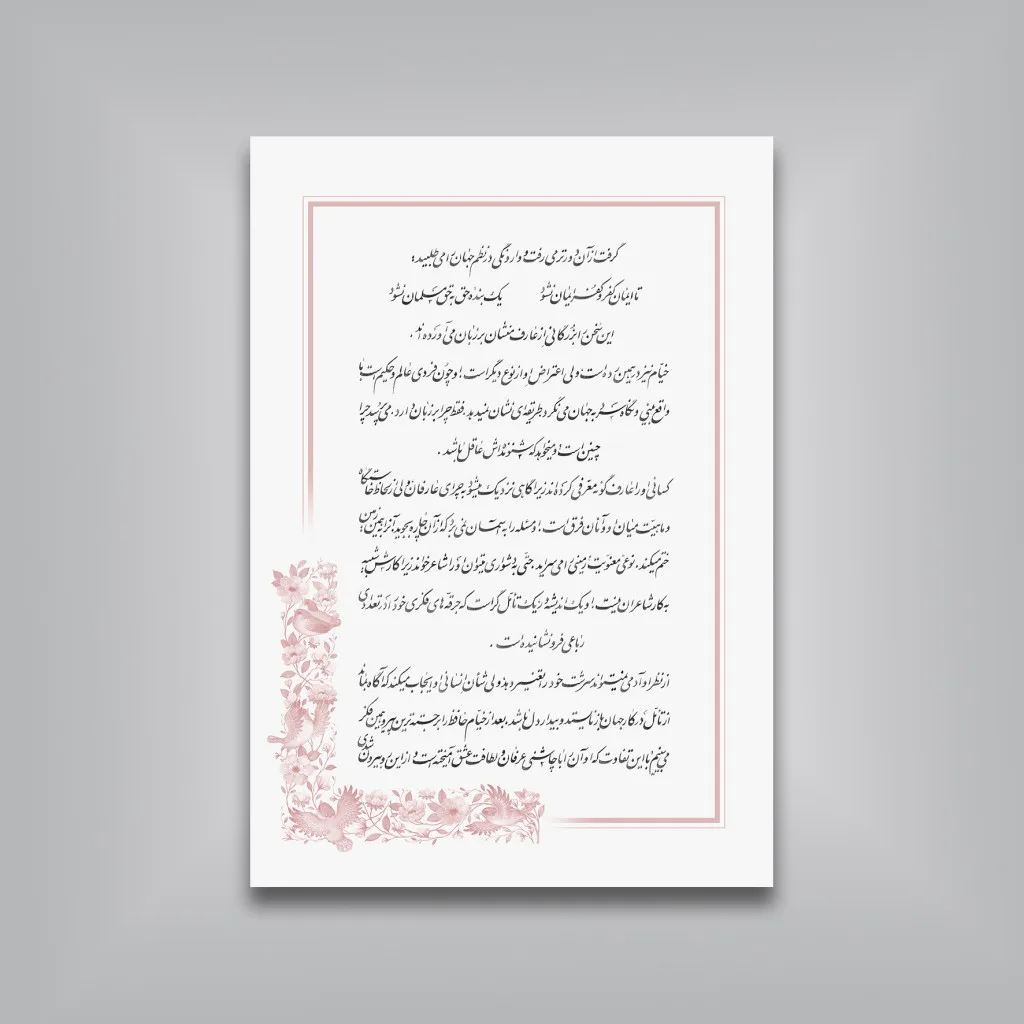 گرفت از آن دورتر می رفت و واژگی در نظم جهان را می طلبید؛
تا ایمان کفر و کفر ایمان نشود یک بنده حق به حق مسلمان نشود
این سخن را بزرگانی از عارف منشان بر زبان می آورده اند.
خیام نیز در همین رده است ولی اعتراض او از نوع دیگر است؛ و چون فردی عالم و حکیم است با
واقع بینی و نگاه سرد به جهان می نگرد و طریقه ای نشان نمیدهد. فقط چرا بر زبان دارد. می گوید چرا
چنین است و میخواهد که شنونده اش عاقل باشد.
کسانی او را عارف گونه معرفی کرده اند زیرا گاهی نزدیک میشود به چرای عارفان ولی از لحاظ خاستگاه
و ماهیت میان او و آنان فرق است؛ او مسئله را به آسمان نمی برد که از آن چاره بجوید آنرا بهمین زمین
ختم میکند. نوعی معنویت زمینی را می سراید. حتی بدشواری میتوان او را شاعر خواند زیرا کارش شبیه
به کار شاعران نیست؛ او یک اندیشه ور یک تأمل گر است که جرقه های فکری خود را در تعدادی
رباعی فرونشانیده است.
از نظر او آدمی نمیتواند سرشت خود را تغییر دهد ولی شأن انسانی او ایجاب میکند که آگاه بماند
از تأمل در کار جهان باز نایستد و بیدار دل باشد. بعد از خیام حافظ را برجسته ترین پیرو همین فکر
می بینیم با این تفاوت که او آن را با چاشنی عرفان و لطافت عشق آمیخته است و از این رو بیرون شدی